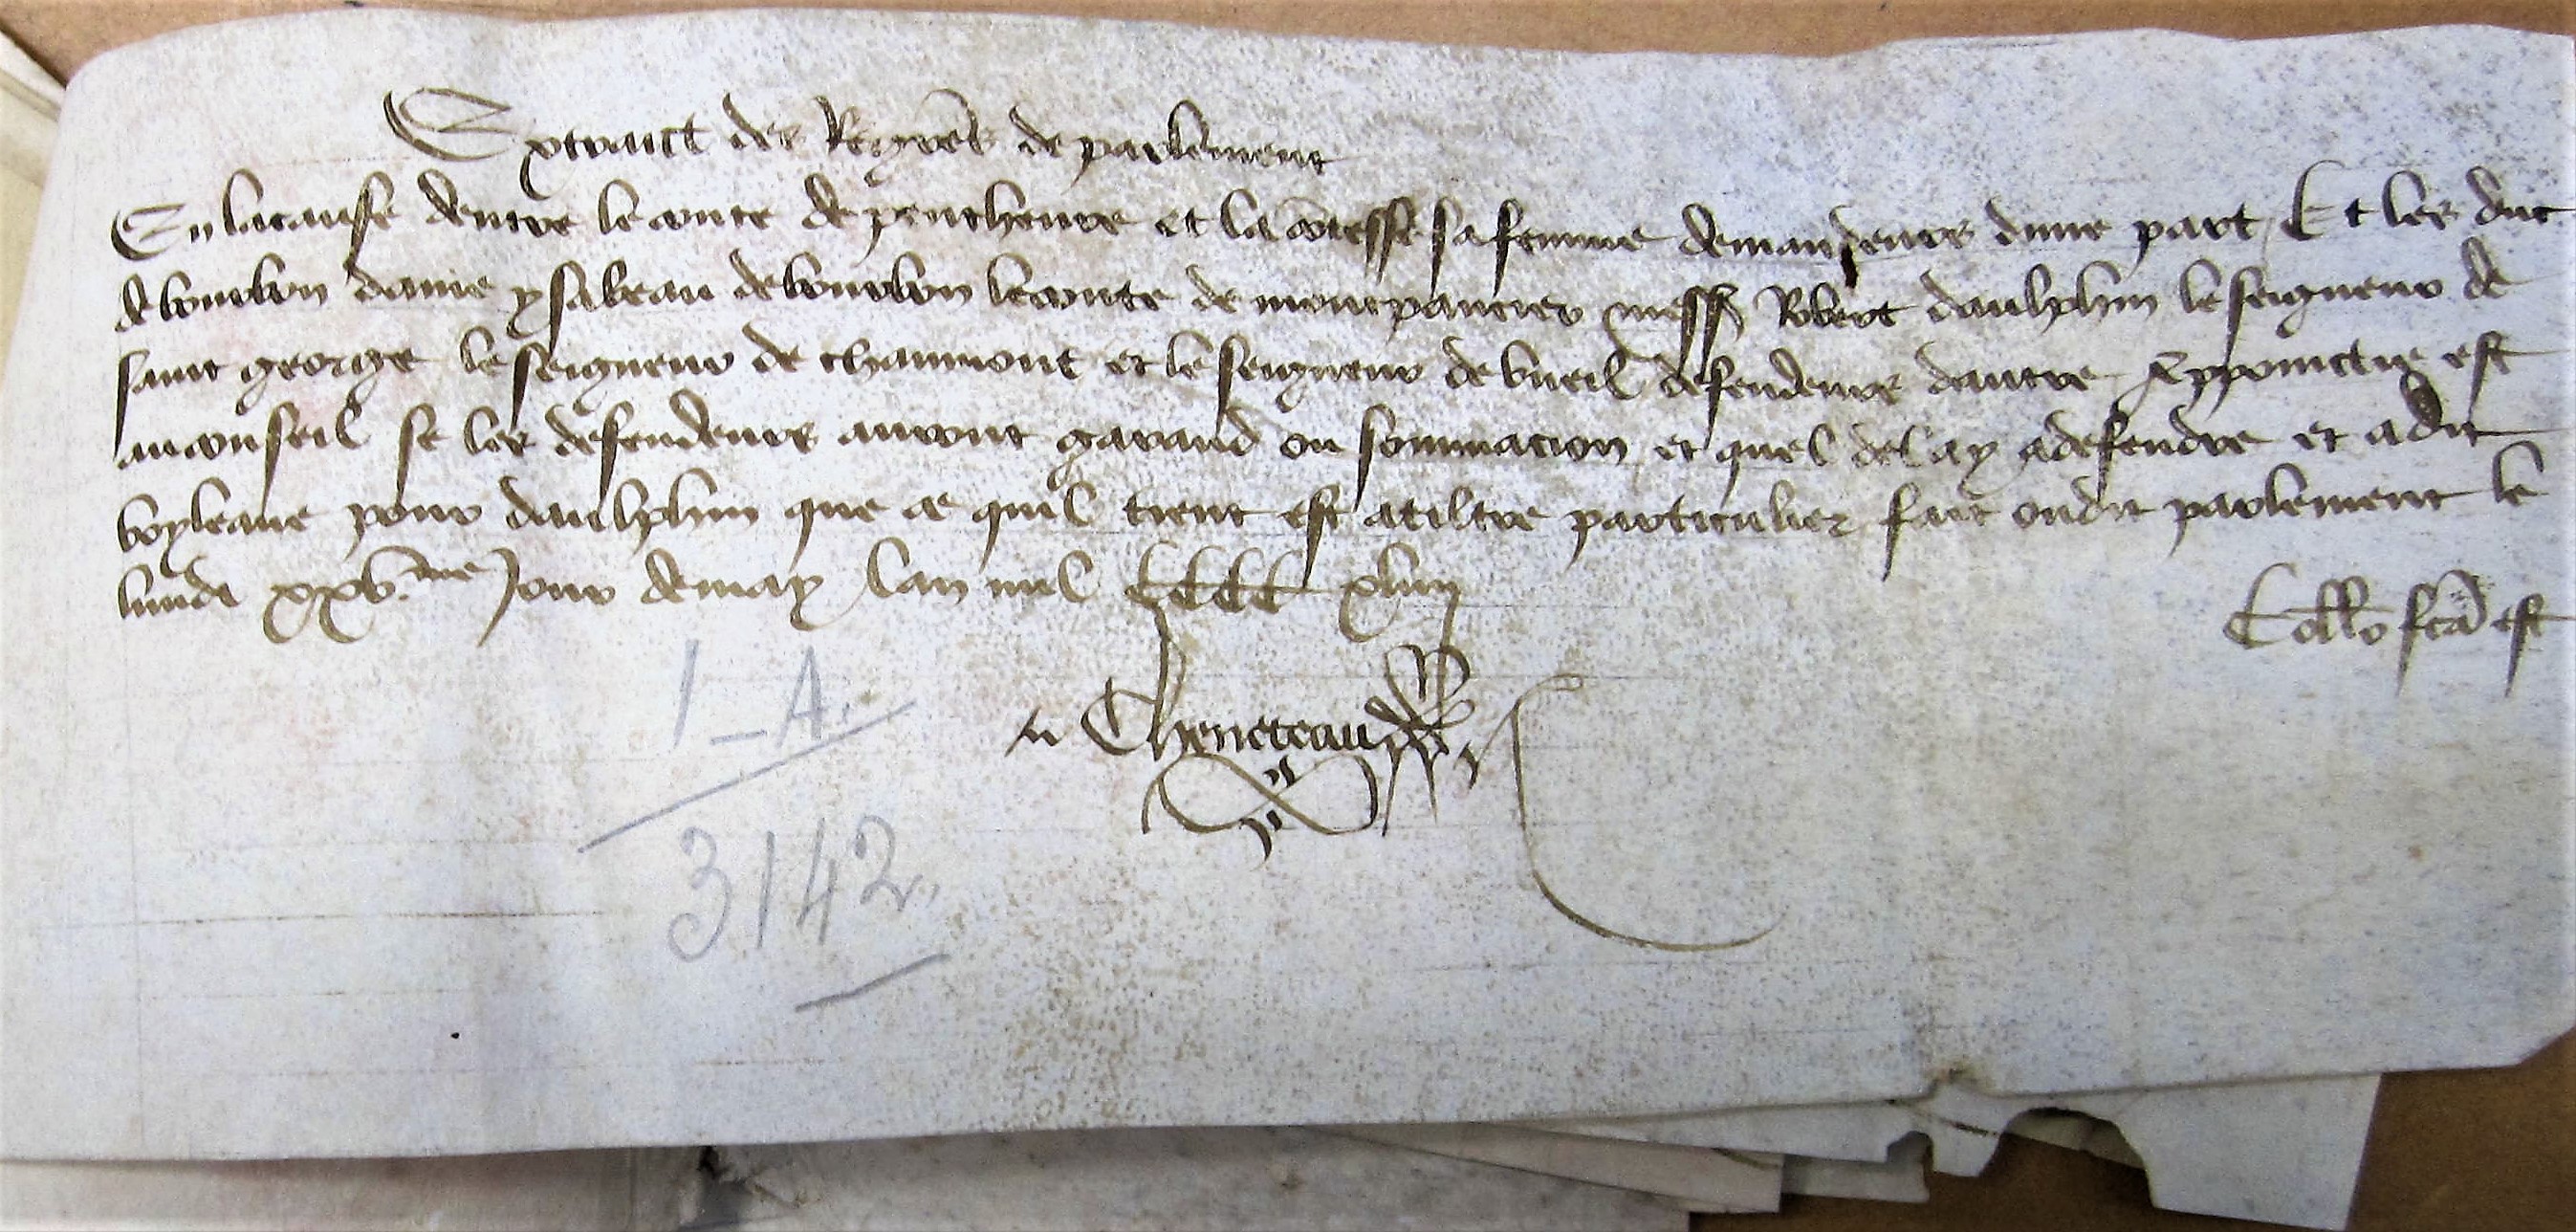 Extraict des Registres de parlement
En la cause dentre le conte de penthevre et la contesse sa femme demandeurs dune part Et les duc
de bourbon dame ysabeau de bourbon le conte de montpancier messire Robert daulphin le seigneur de
saint george le seigneur de chaumont et le seigneur de bueil defendeurs dautre Appoinctie est
au conseil se les defendeurs auront garand ou sommacion et quel delay a defendre et a dit
boyleaue pour daulphin que ce quil tient est a tiltre particulier fait oudit parlement le
lundi xxv.me Jour de may lan mil CCCC xliiij
Collō fcā est
Cheneteau
1_A.
3142.